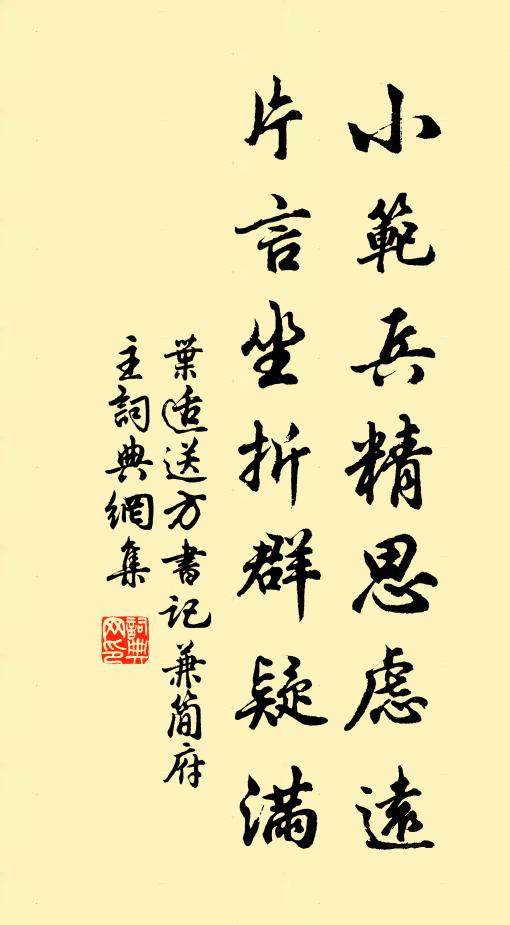 小範兵精思慮遠
片言坐折群疑滿
葉适送方書記兼簡府
主詞典網集
詞典网印